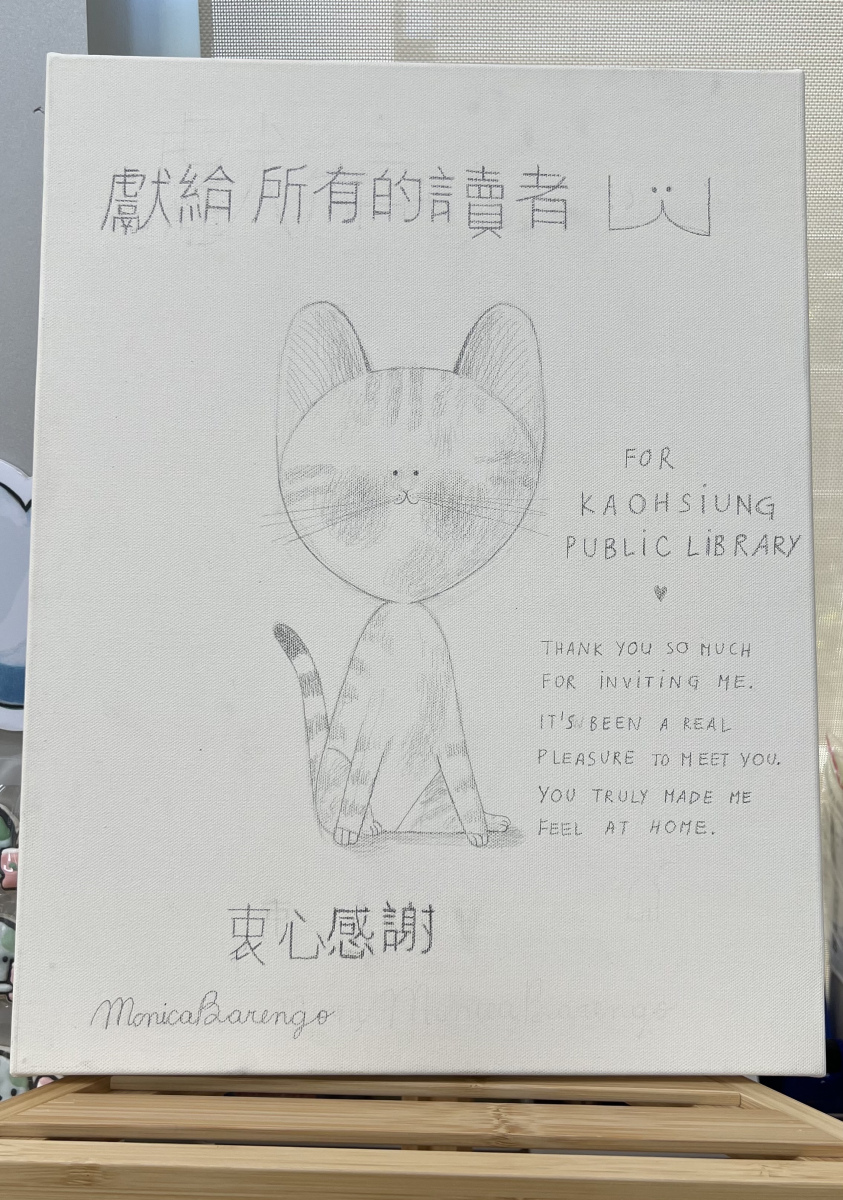 獻給所有的讀者
FOR
KAOHSIUNG
PUBLIC LIBRARY
THANK YOU SO MUCH
FOR INVITING ME.
IT'S BEEN A REAL
PLEASURE TO MEET YOU.
YOU TRULY MADE ME
FEEL AT HOME.
衷心感謝
Monica Barengo